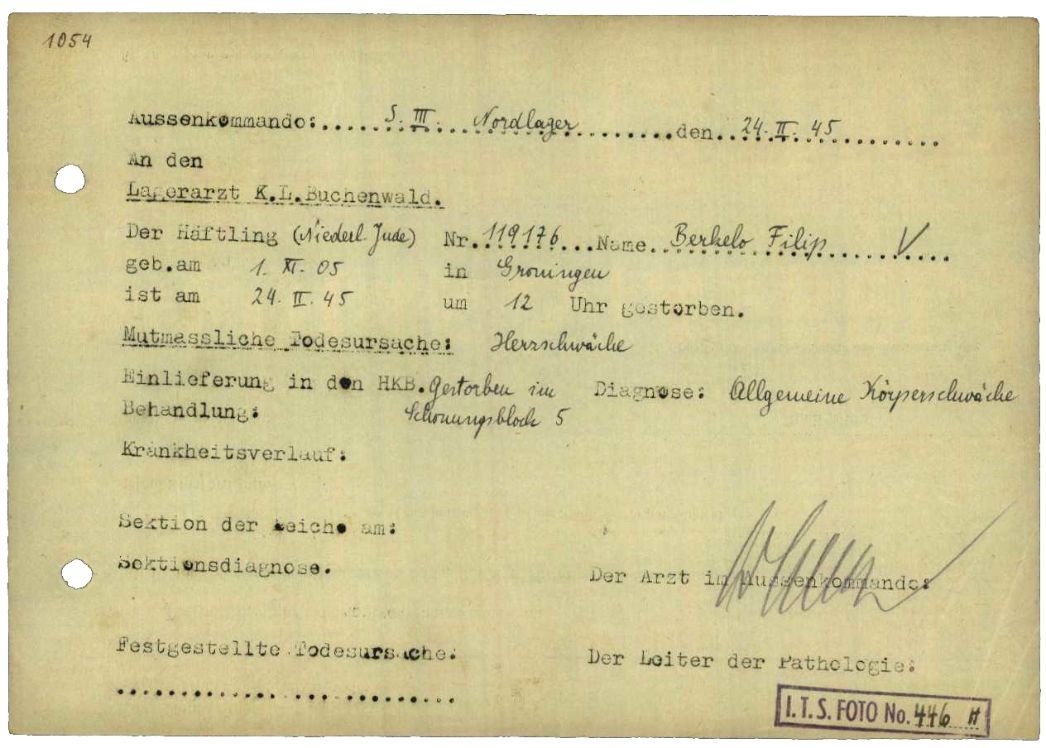 1054
Aussenkommando: S. III. Nordlager den 24. II. 45
An den
Lagerarzt K.L.Buchenwald.
Der Häftling (Niederl. Jude) Nr. 119176 Name Berkelo Filip V
geb.am 1. XI. 05 in Groningen
ist am 24. II. 45 um 12 Uhr gestorben.
Mutmassliche Todesursache: Herzschwäche
Einlieferung in den HKB. Gestorben im Diagnose: Allgemeine Körperschwäche
Behandlung: Schonungsblock 5
Krankheitsverlauf:
Sektion der Leiche am:
Sektionsdiagnose.
Der Arzt im Aussenkommando:
Festgestellte Todesursache:
Der Leiter der Pathologie:
I.T.S. FOTO No. 446 H